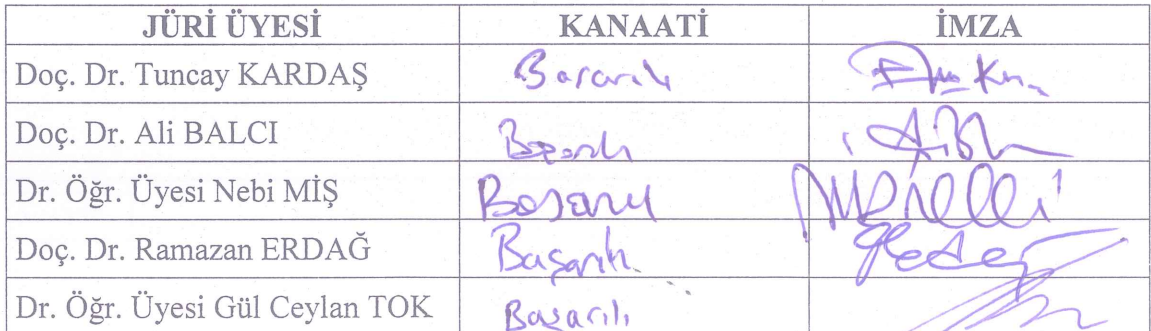 JÜRİ ÜYESİ KANAATİ İMZA
Doç. Dr. Tuncay KARDAŞ Başarılı
Doç. Dr. Ali BALCI Başarılı
Dr. Öğr. Üyesi Nebi MİŞ Başarılı
Doç. Dr. Ramazan ERDAĞ Başarılı
Dr. Öğr. Üyesi Gül Ceylan TOK Başarılı